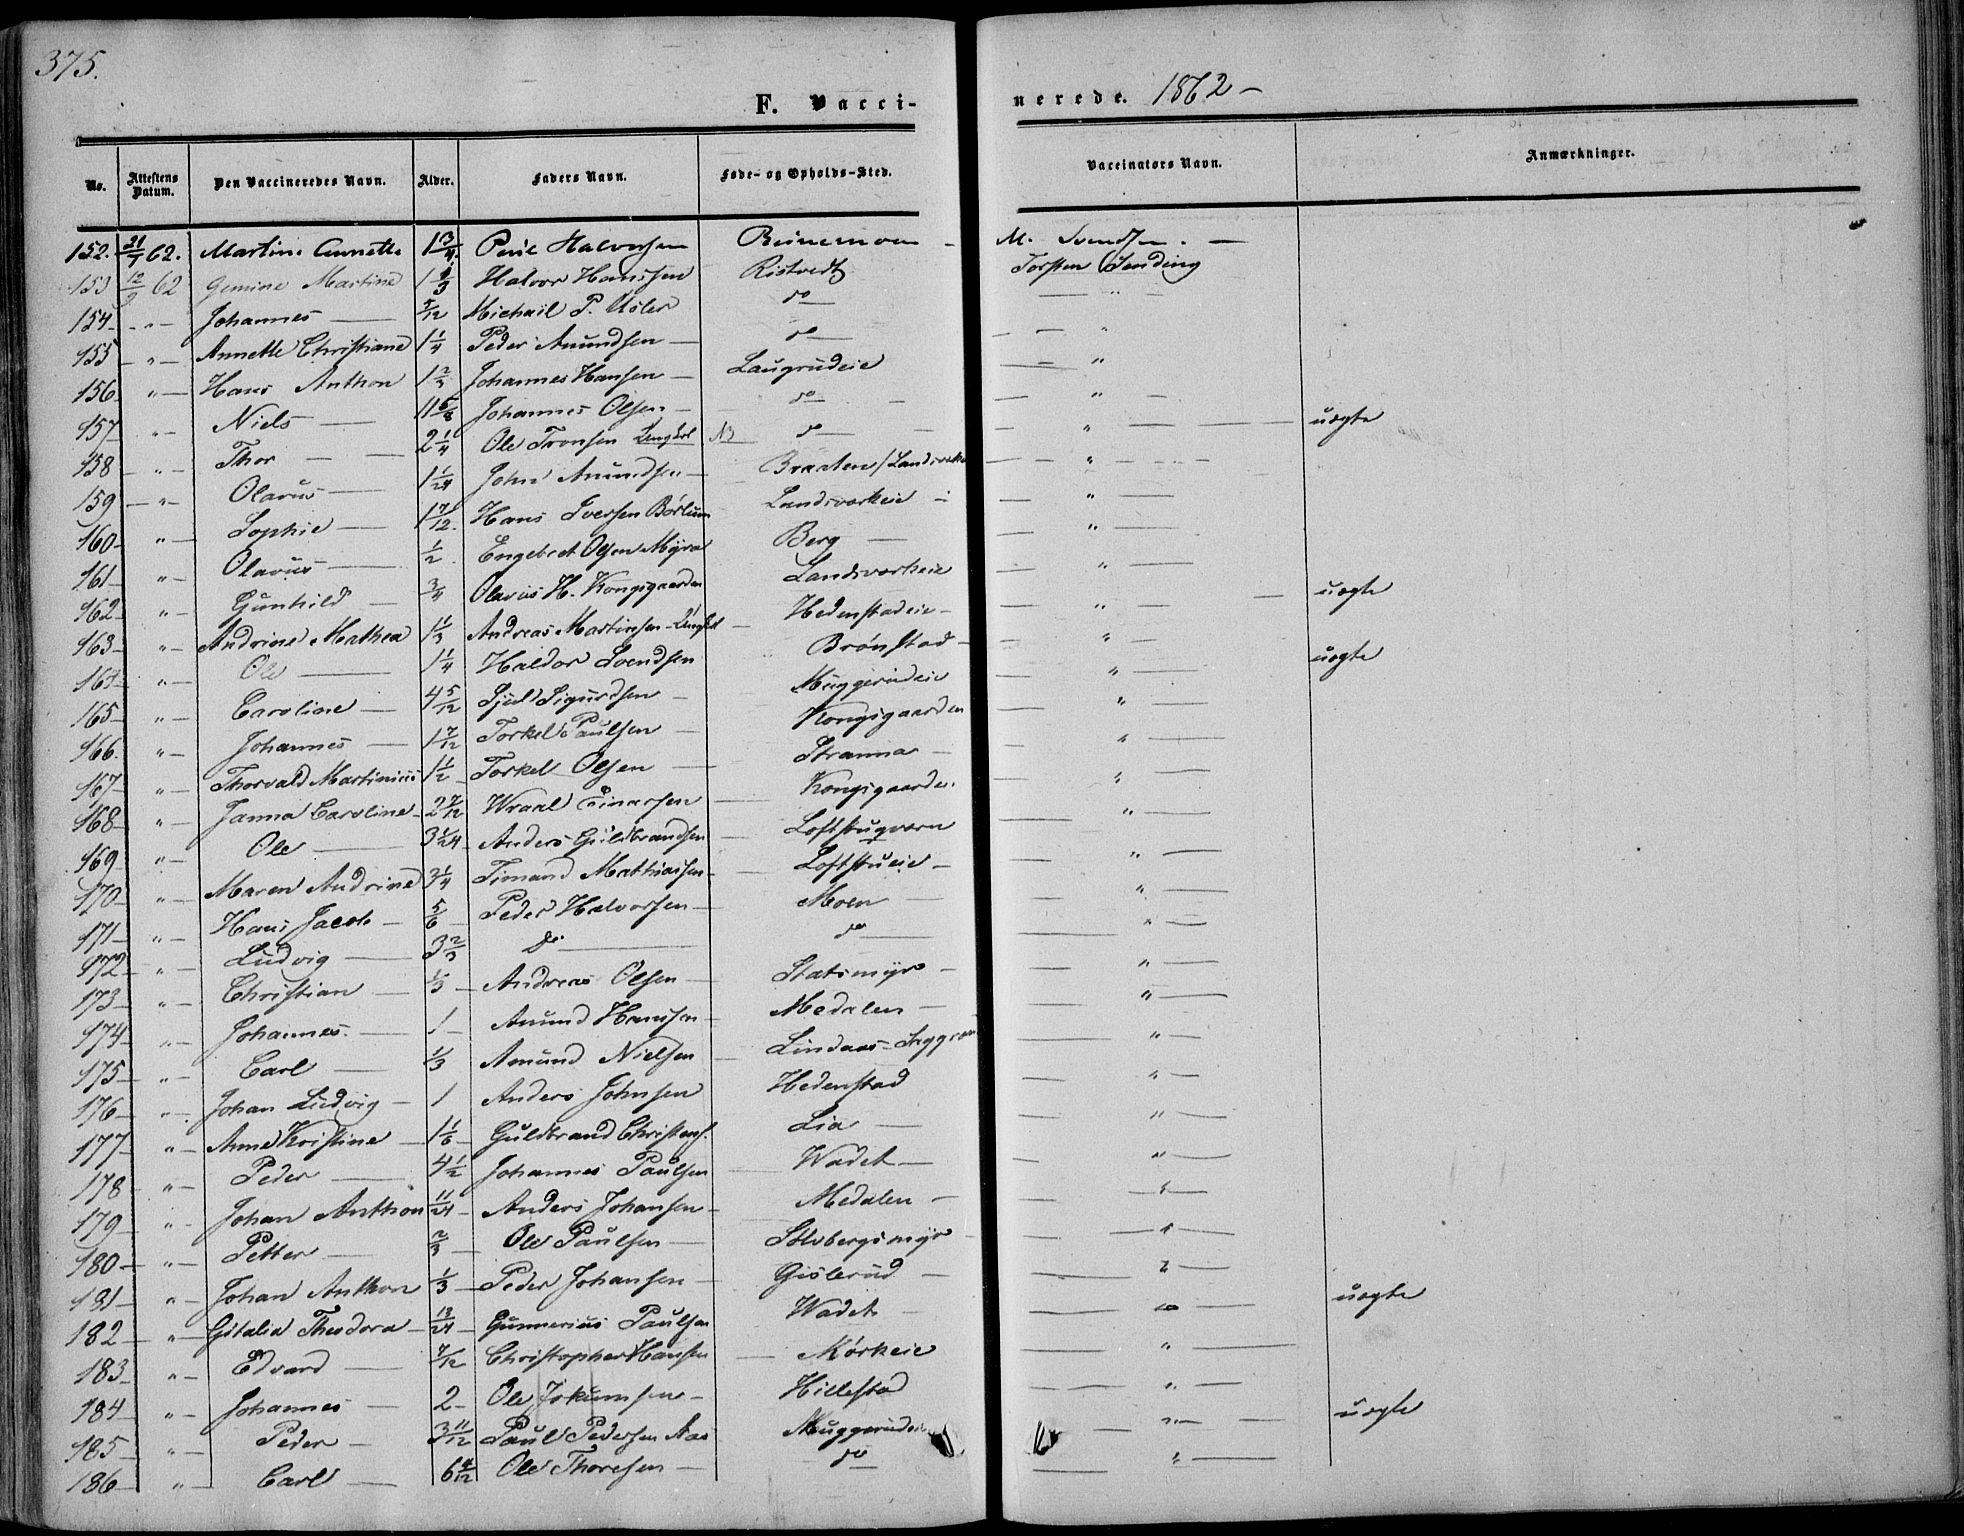 375.
F. Vaccinerede. 1862 -
No. Attestens Datum. Den Vaccineredes Navn. Alder. Faders Navn. Føde- og Opholds-Sted. Vaccinators Navn. Anmærkninger.
152. 21/7 62. Martine Annette 1 3/4. Paul Halvorsen M. Svendsen. -
153 12/9 62 Gemine Martine 1 1/3 Halvor Hanssen Ristvedt Torsten Sending
154 - " - Johannes 5/12 Michail P. do - " -
155 " - Annette Christiane 1 1/4 Peder Amundsen do - "
156 " - Hans Anthon 1 2/3 Johannes Hansen Laugrudeie - "
157 " - Niels 11 5/8 Johannes Olsen do - " -
158 " - Thor 2 1/4 Ole Tronsen Lengdal NB do - " - uægte
159 - " - Olavus 1 1/24 John Amundsen Braaten / Landsverk - " -
160 " - Sophie 1 7/12. Hans Iversen Børlum Landsverkeie - " -
161 " - Olavus 1/2 Engebret Olsen Myra Berg - " -
162 " - Gunhild 3/4 Olavus H. Kongsgaarden Landsverkeie - " -
163 " - Andrine Mathea 1 1/3 Andreas Martinsen Lengdal Hedenstadeie - " - uægte
164 " - Ole 1 1/4 Haldor Svendsen Brønstad - "
165 " - Caroline 4 5/12 Sjul Sigurdsen Muggerudeie - " - uægte
166. " - Johannes 1 7/12 Torkel Paulsen Kongsgaarden - " -
167 " - Thorvald Martinius 1 1/2 Torkel Olsen Stranna - "
168 " - Janna Caroline 2 7/12 Wraal Einarsen Kongsgaarden - "
169 " - Ole 3 1/24 Anders Guldbrandsen Loftstugværn - " -
170 " - Maren Andrine 3 1/4 Timand Mathiassen Loftstueie - " -
171 " - Hans Jacob 5/6 Peder Halvorsen Moen - " -
172 " - Ludvig 3 2/3 Do do - " -
173 " - Christian 1/3 Andreas Olsen Statsmyr - " -
174 " - Johannes. 1 Amund Hansen Medalen - " -
175 " - Carl 1/3 Amund Nielsen Lindaas - " -
176 " - Johan Ludvig 1 Anders Johnsen Hedenstad - " -
177 " - Anne Kristine 1 1/6 Guldbrand Christens. Lia - " -
178 " - Peder 4 1/2 Johannes Paulsen Wadet - " -
179 " - Johan Anthon 11/24 Anders Johansen Medalen - " -
180 " - Petter 2/3 Ole Paulsen Solvbergsmyr - " -
181 " - Johan Anthon 1/3 Peder Johansen Gislerud - " -
182 " - Gitalia Theodora 13/24 Gunnerius Paulsen Wadet - " - uægte
183 " - Edvard 7/12 Christopher Hansen Mørkeie - " -
184 " - Johannes 2 - Ole Jokumsen Hillestad - " -
185 " - Peder 3 11/12 Paul Pedersen Aas Muggerudeie - " - uægte
186 " - Carl 6 4/12 Ole Thoresen do - " -